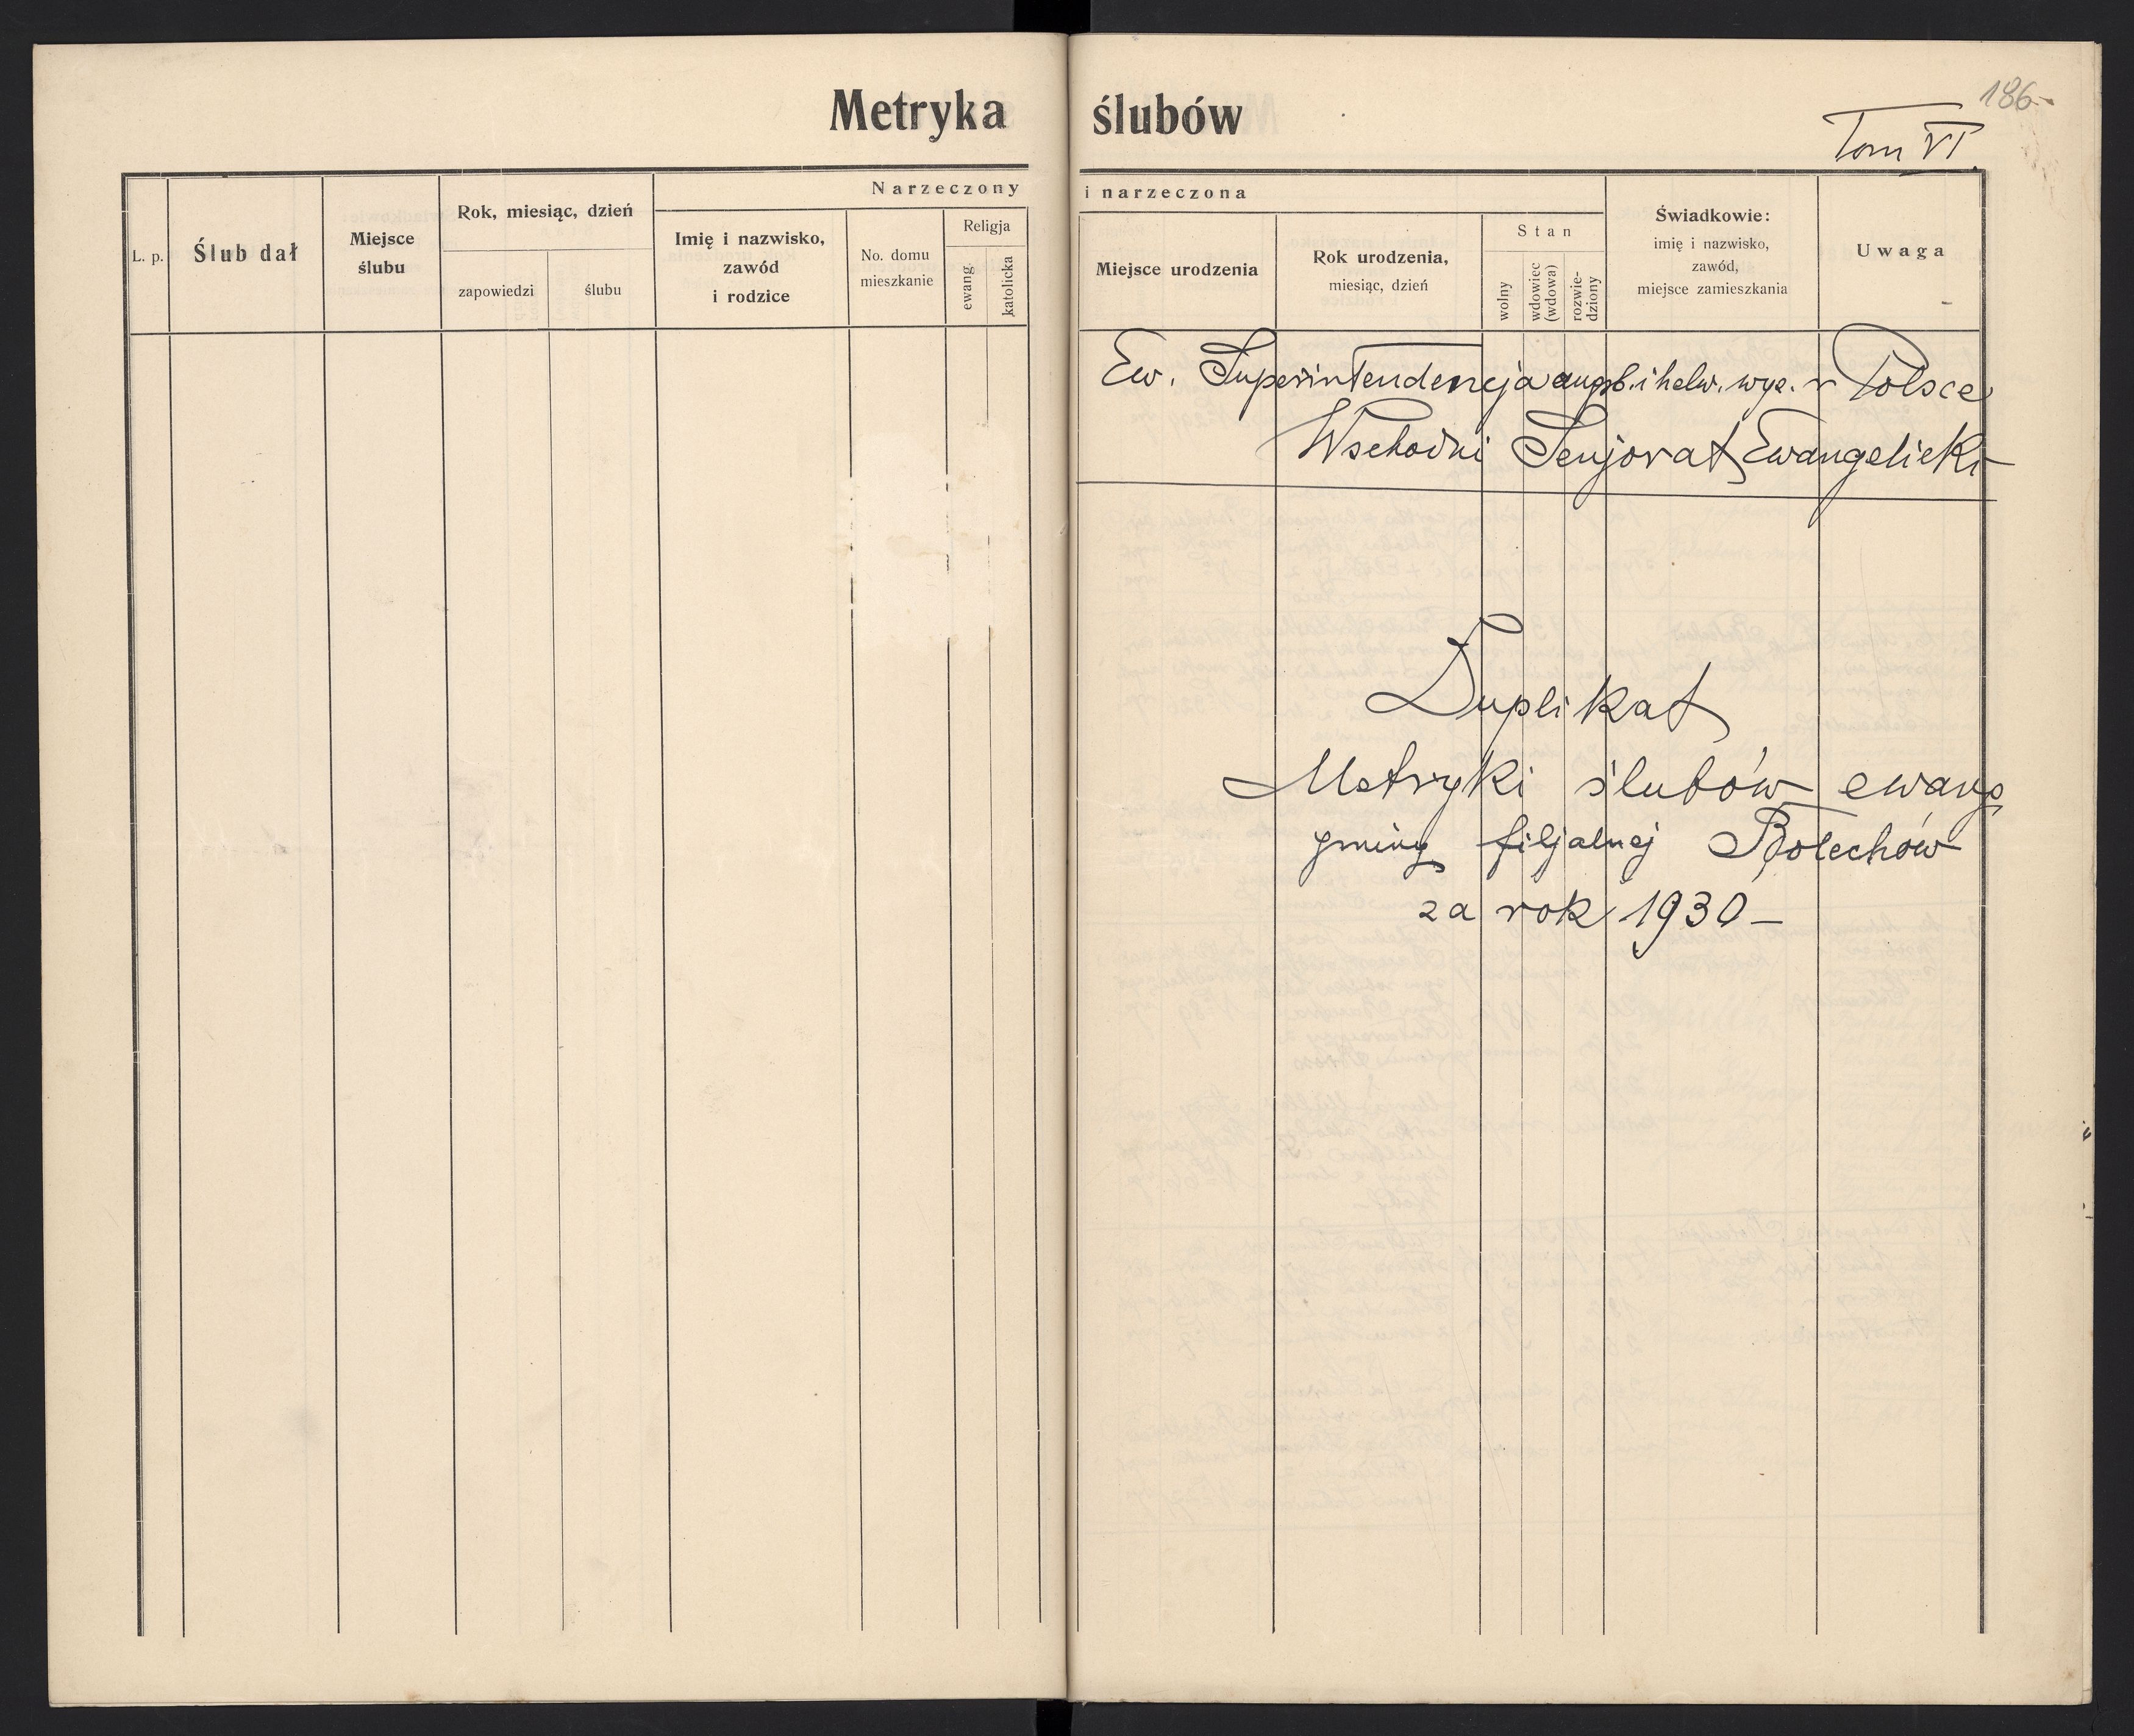 Metryka ślubów
186
Tom VI
L. p.
Ślub dał
Miejsce
ślubu
Rok, miesiąc, dzień
zapowiedzi
ślubu
Narzeczony i narzeczona
Imię i nazwisko,
zawód
i rodzice
No. domu
mieszkanie
Religja
ewang.
katolicka
Miejsce urodzenia
Rok urodzenia,
miesiąc, dzień
Stan
wolny
wdowiec
(wdowa)
rozwie-
dziony
Świadkowie:
imię i nazwisko,
zawód,
miejsce zamieszkania
Uwaga
Ew. Superintendencja augsb. i helw. wyz. w Polsce
Wschodni Senjorat Ewangelicki
Duplikat
Metryki ślubów ewang
gminy filjalnej Bolechów
za rok 1930 –